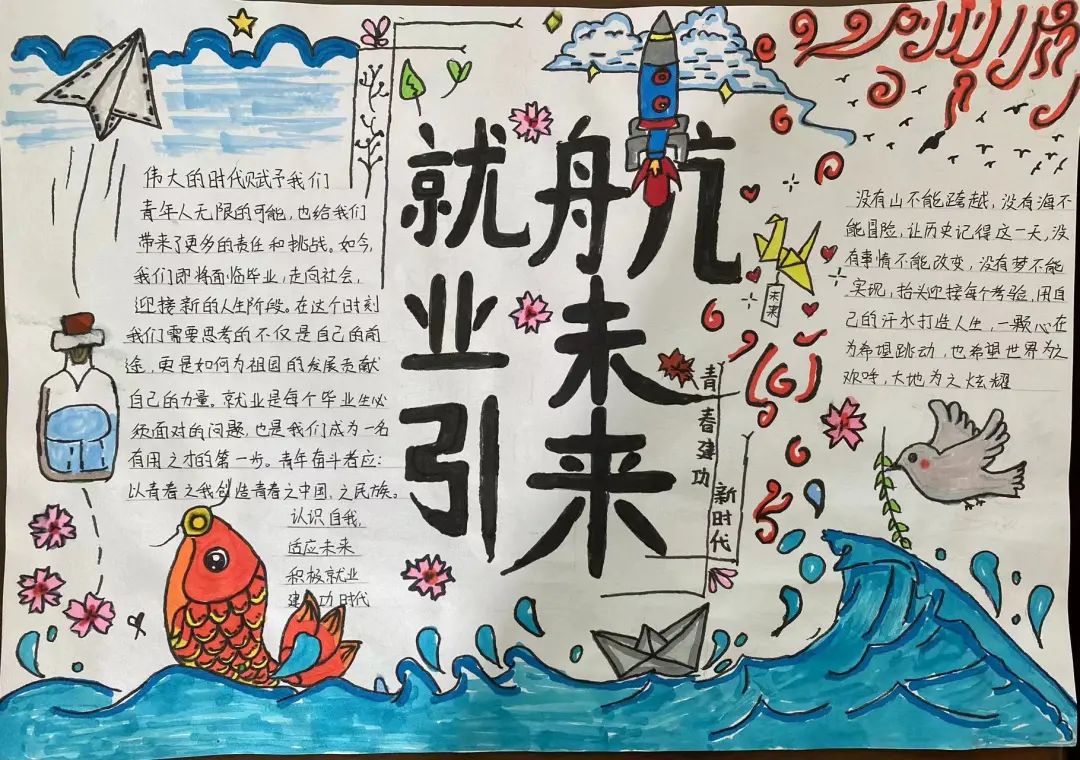 就业引
航未来
伟大的时代赋予我们
青年人无限的可能，也给我们
带来了更多的责任和挑战。如今，
我们即将面临毕业，走向社会，
迎接新的人生阶段。在这个时刻
我们需要思考的不仅是自己的前
途，更是如何为祖国的发展贡献
自己的力量。就业是每个毕业生必
须面对的问题，也是我们成为一名
有用之才的第一步。青年奋斗者应：
以青春之我创造青春之中国，之民族。
认识自我，
适应未来
积极就业
建功时代
青春建功
新时代
未来
没有山不能跨越，没有海不
能冒险，让历史记得这一天，没
有事情不能改变，没有梦不能
实现，抬头迎接每个考验，用自
己的汗水打造人生，一颗心在
为希望跳动，也希望世界为之
欢呼，大地为之炫耀